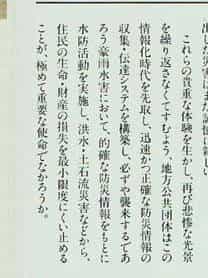 これらの貴重な体験を生かし、再び悲惨な光景
を繰り返さなくてすむよう、地方公共団体はこの
情報化時代を先取し、迅速かつ正確な防災情報の
収集・伝達システムを構築し、必ずや襲来するであ
ろう豪雨水害において、的確な防災情報をもとに
水防活動を実施し、洪水・土石流災害などから、
住民の生命・財産の損失を最小限度にくい止める
ことが、極めて重要な使命でなかろうか。